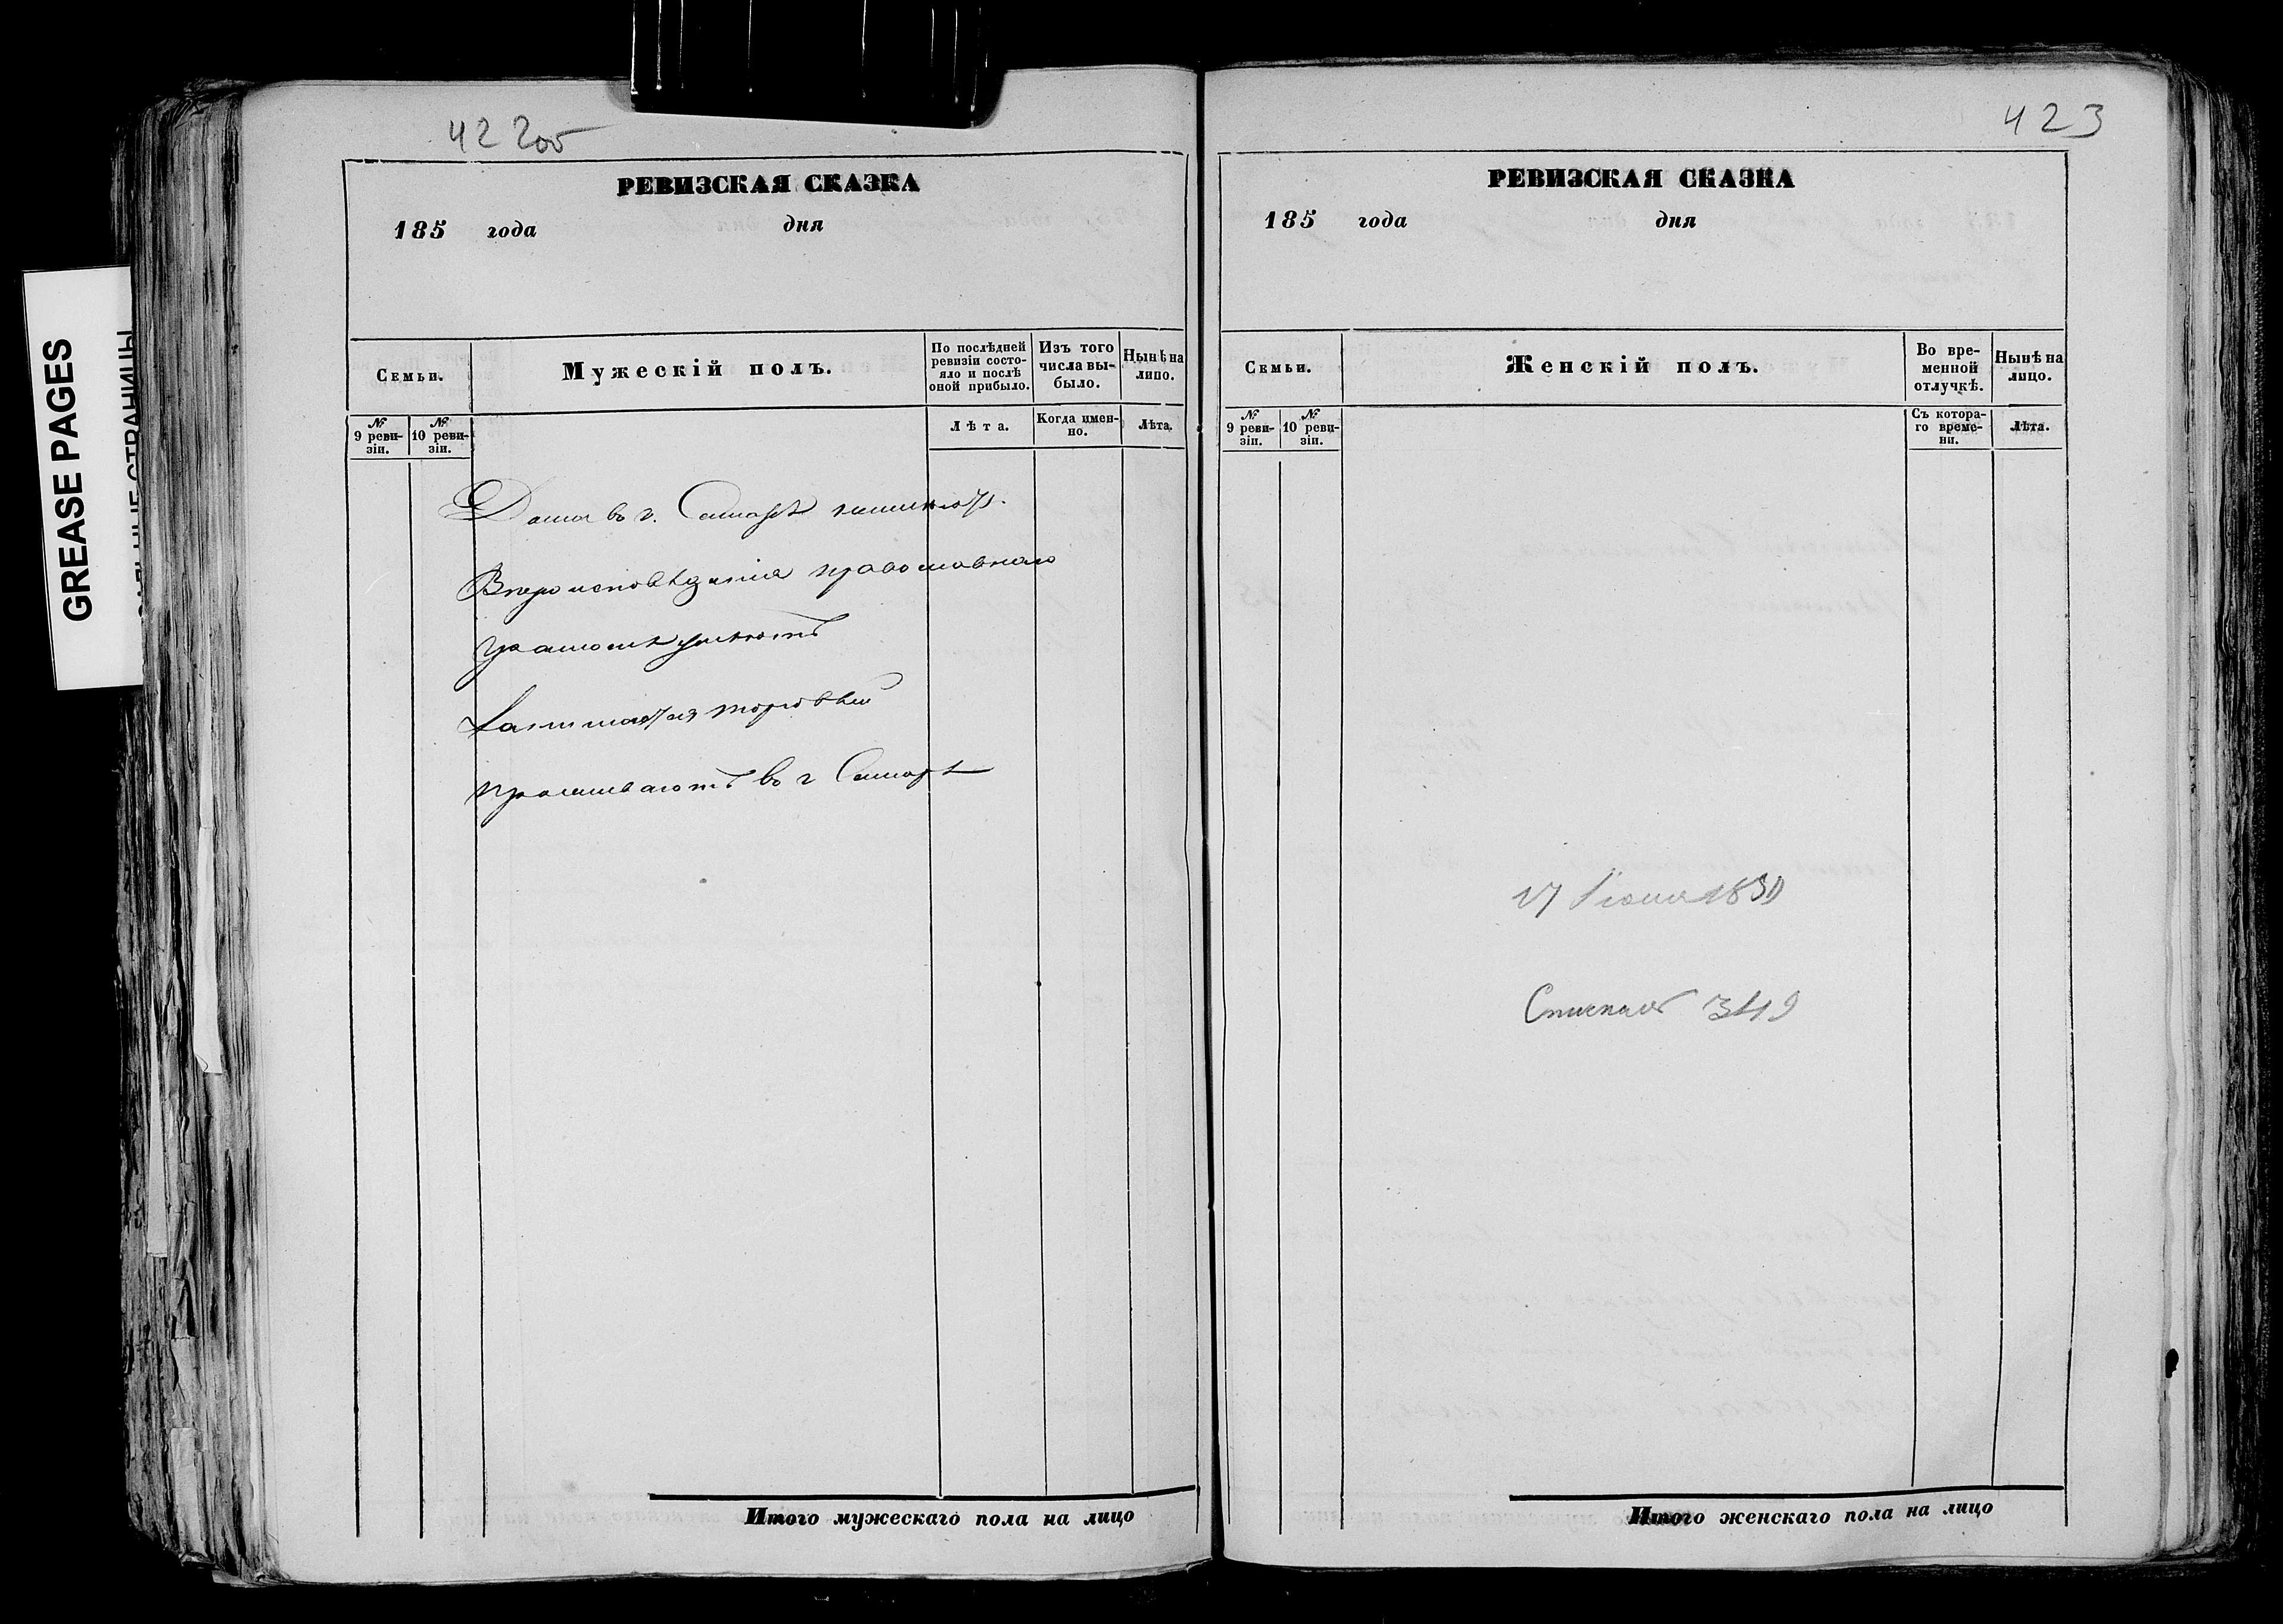 422об
РЕВИЗСКАЯ СКАЗКА
185 года дня
Семьи.
Мужескій полъ.
По послѣдней ревизіи состояло и послѣ оной прибыло.
Изъ того числа выбыло.
Нынѣ на лицо.
№ 9 ревизіи.
№ 10 ревизіи.
Лѣта.
Когда именно.
Лѣта.
Дома въ г. Самарѣ
Вѣроисповѣданія православнаго
Грамотѣ умѣютъ
Занимаются торговлей
проживаютъ въ г Самарѣ
Итого мужескаго пола на лицо
423
РЕВИЗСКАЯ СКАЗКА
185 года дня
Семьи.
Женскій полъ.
Во временной отлучкѣ.
Нынѣ на лицо.
№ 9 ревизіи.
№ 10 ревизіи.
Съ котораго времени.
Лѣта.
17 Іюня
349
Итого женскаго пола на лицо
GREASE PAGES